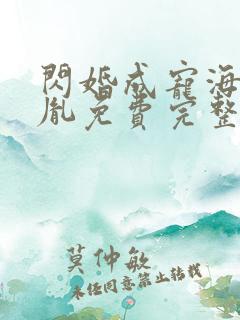 閃婚成寵海
胤免費完整
莫仲敏
未經同意禁止轉載